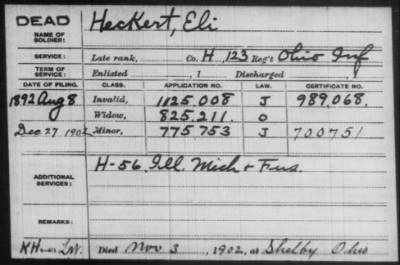 DEAD
NAME OF SOLDIER: Heckert, Eli
SERVICE: Late rank, Co. H, 123 Reg't Ohio Inf
TERM OF SERVICE: Enlisted , 1 Discharged , 1
DATE OF FILING. CLASS. APPLICATION NO. LAW. CERTIFICATE NO.
1892 Aug 8 Invalid, 1125.008 J 989.068.
Widow, 825.211. O
Dec 27 1902 Minor, 775753 J 700751
ADDITIONAL SERVICES: H-56, Ill. Mich + Fus.
REMARKS:
Died Nov 3, 1902, at Shelby Ohio